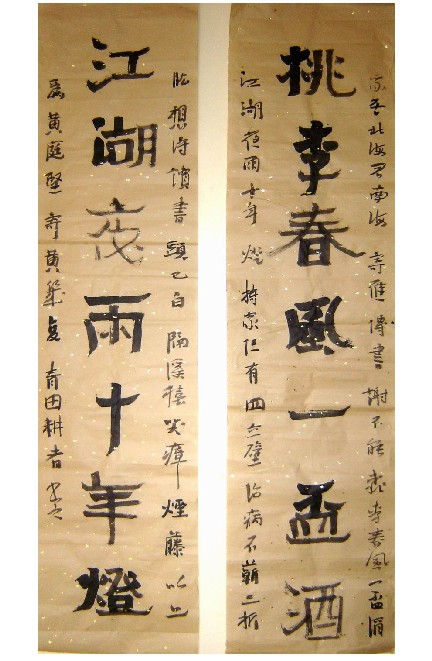 我居北海君南海 寄雁傳書謝不能 桃李春風一盃酒
桃李春風一盃酒
江湖夜雨十年燈 持家但有四立壁 治病不蘄三折
肱想得讀書頭已白 隔溪猿哭瘴煙藤 以上
江湖夜雨十年燈
為黃庭堅寄黃幾復 青田耕者書之